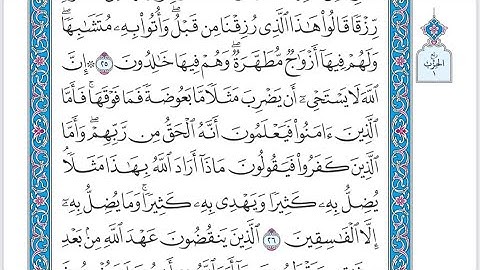 رِّزۡقٗا قَالُواْ هَٰذَا ٱلَّذِي رُزِقۡنَا مِن قَبۡلُۖ وَأُتُواْ بِهِۦ مُتَشَٰبِهٗاۖ
وَلَهُمۡ فِيهَآ أَزۡوَٰجٞ مُّطَهَّرَةٞۖ وَهُمۡ فِيهَا خَٰلِدُونَ ٢٥ ۞ إِنَّ
ٱللَّهَ لَا يَسۡتَحۡيِۦٓ أَن يَضۡرِبَ مَثَلٗا مَّا بَعُوضَةٗ فَمَا فَوۡقَهَاۚ فَأَمَّا
ٱلَّذِينَ ءَامَنُواْ فَيَعۡلَمُونَ أَنَّهُ ٱلۡحَقُّ مِن رَّبِّهِمۡۖ وَأَمَّا
ٱلَّذِينَ كَفَرُواْ فَيَقُولُونَ مَاذَآ أَرَادَ ٱللَّهُ بِهَٰذَا مَثَلٗاۘ
يُضِلُّ بِهِۦ كَثِيرٗا وَيَهۡدِي بِهِۦ كَثِيرٗاۚ وَمَا يُضِلُّ بِهِۦٓ
إِلَّا ٱلۡفَٰسِقِينَ ٢٦ ٱلَّذِينَ يَنقُضُونَ عَهۡدَ ٱللَّهِ مِنۢ بَعۡدِ